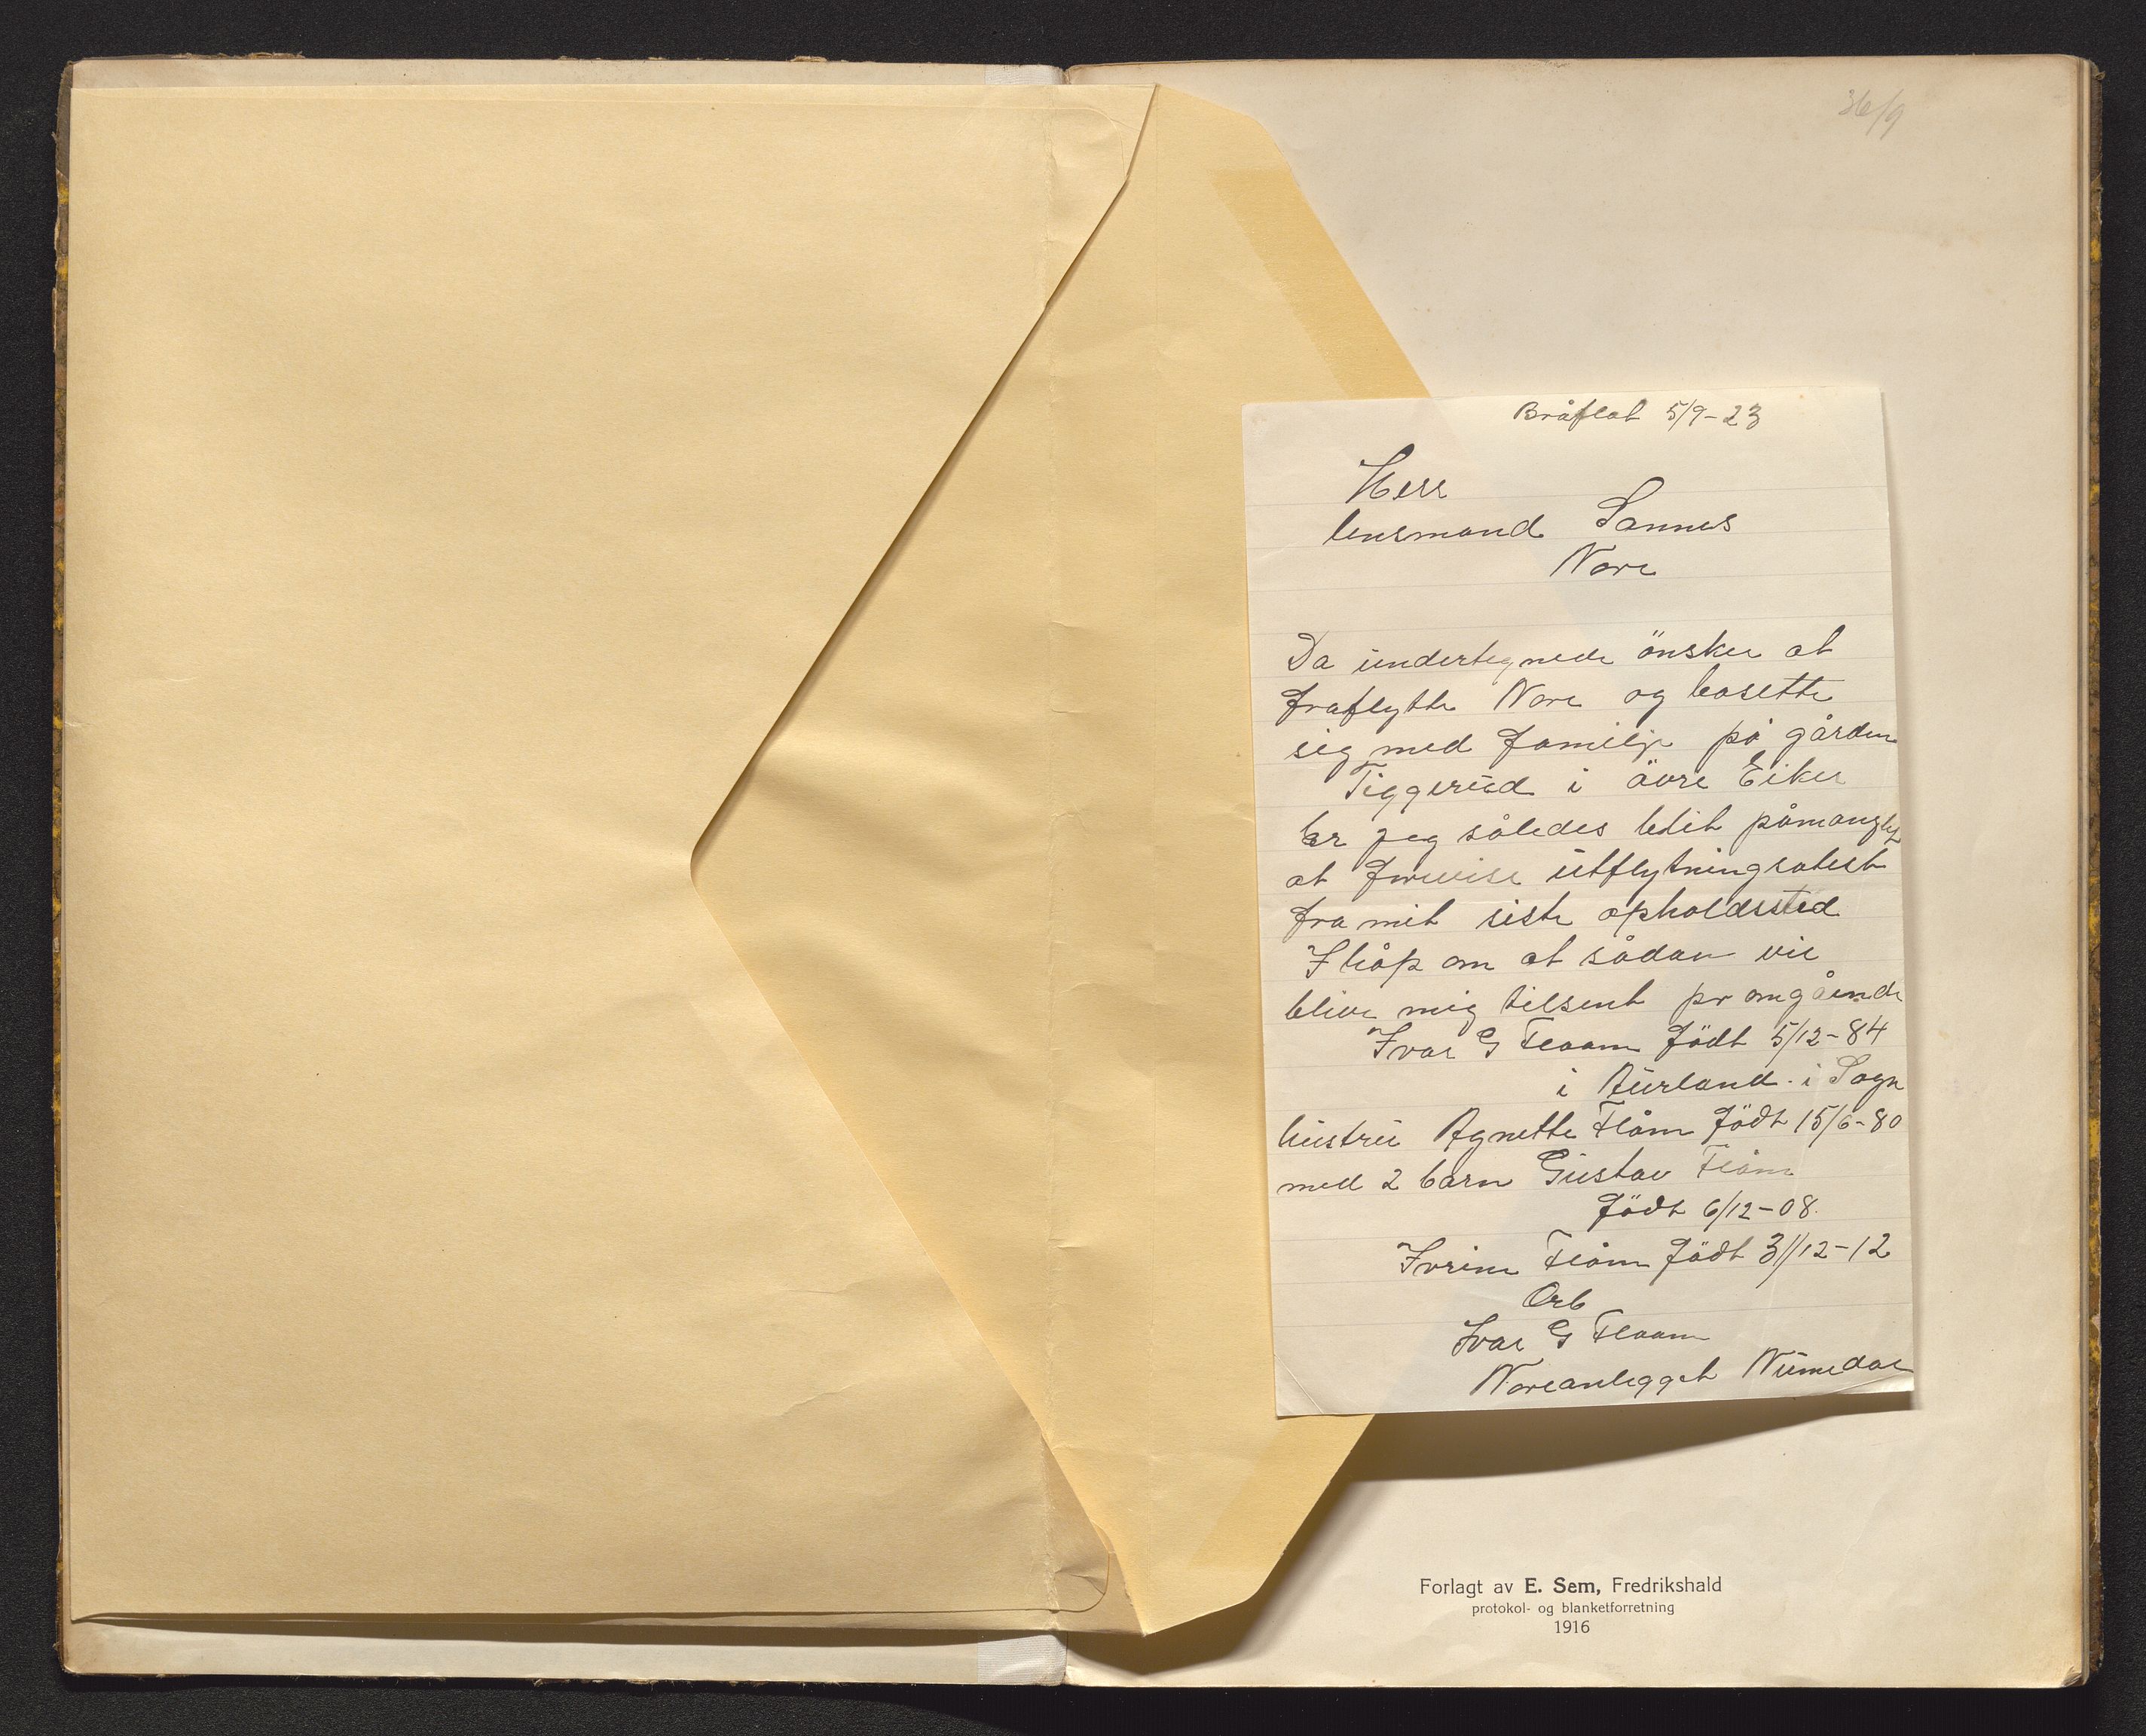 36/9
Bråflat 5/9-23
Herr
lensmand Sannes
Nore
Da undertegnede önsker at
fraflytte Nore og bosette
sig med familje på gården
Tiggerud i övre Eiker
er jeg således blit
at forevise utflytningsatest
fra mit siste opholdssted
I håp om at sådan vil
blive mig tilsent pr omgåinde
Ivar G Flaam födt 5/12-84
i Aurland. i Sogn
hustru Agnette Flåm födt 15/6-80
med 2 barn Gustav Flåm
födt 6/12-08.
Ivrine Flåm födt 31/12-12
Arb
Ivar G Flaam
Noreanlegget Numedal
Forlagt av E. Sem, Fredrikshald
protokol- og blanketforretning
1916